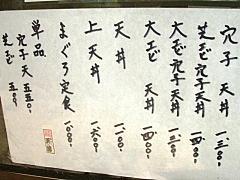 穴子天丼 一、三〇〇
芝エビ穴子天丼
大エビ穴子天丼
大エビ天丼 一、四〇〇
天丼 一、〇〇〇
上天丼 一、六〇〇
まぐろ定食 一、〇〇〇
単品
穴子天 五五〇
芝エビ 五〇〇